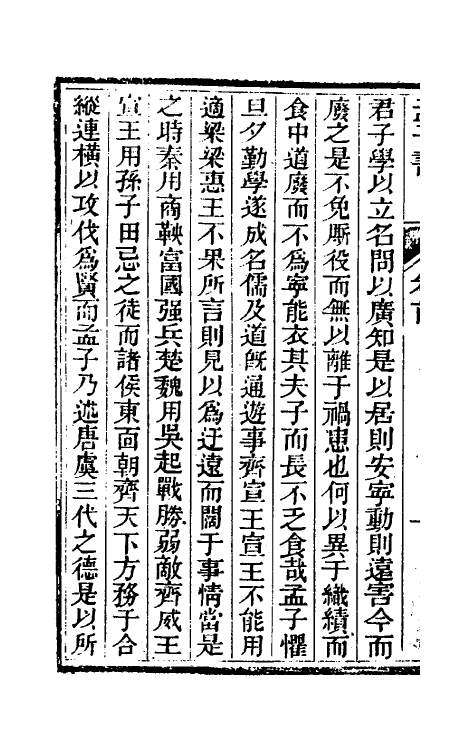 君子學以立名問以廣知是以居則安寧動則遠害今而
廢之是不免厮役而無以離于禍患也何以異于織績而
食中道廢而不爲寧能衣其夫子而長不乏食哉孟子懼
旦夕勤學遂成名儒及道旣通遊事齊宣王宣王不能用
適梁梁惠王不果所言則見以爲迂遠而闊于事情當是
之時秦用商鞅富國强兵楚魏用吳起戰勝弱敵齊威王
宣王用孫子田忌之徒而諸侯東面朝齊天下方務于合
縱連橫以攻伐爲賢而孟子乃述唐虞三代之德是以所